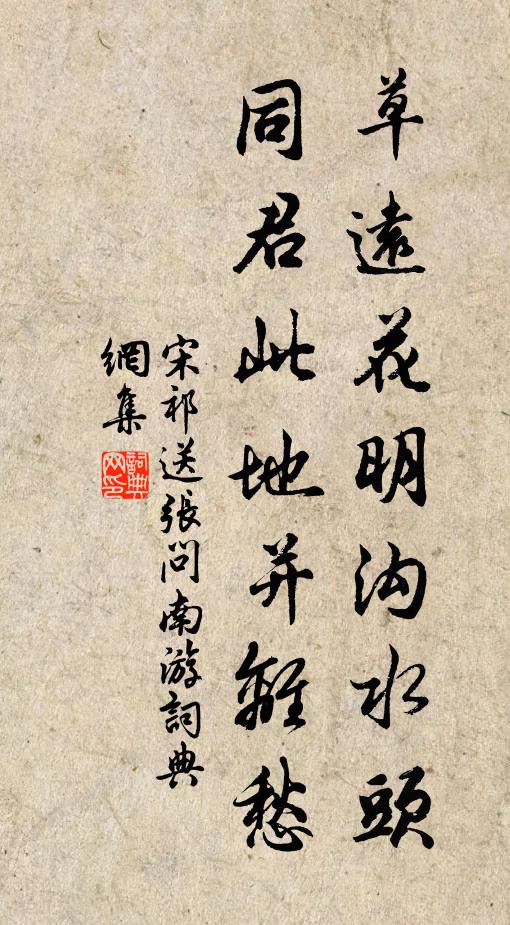 草遠花明沟水頭
同君此地并離愁
宋祁送張問南游詞典
網集
詞典
网印